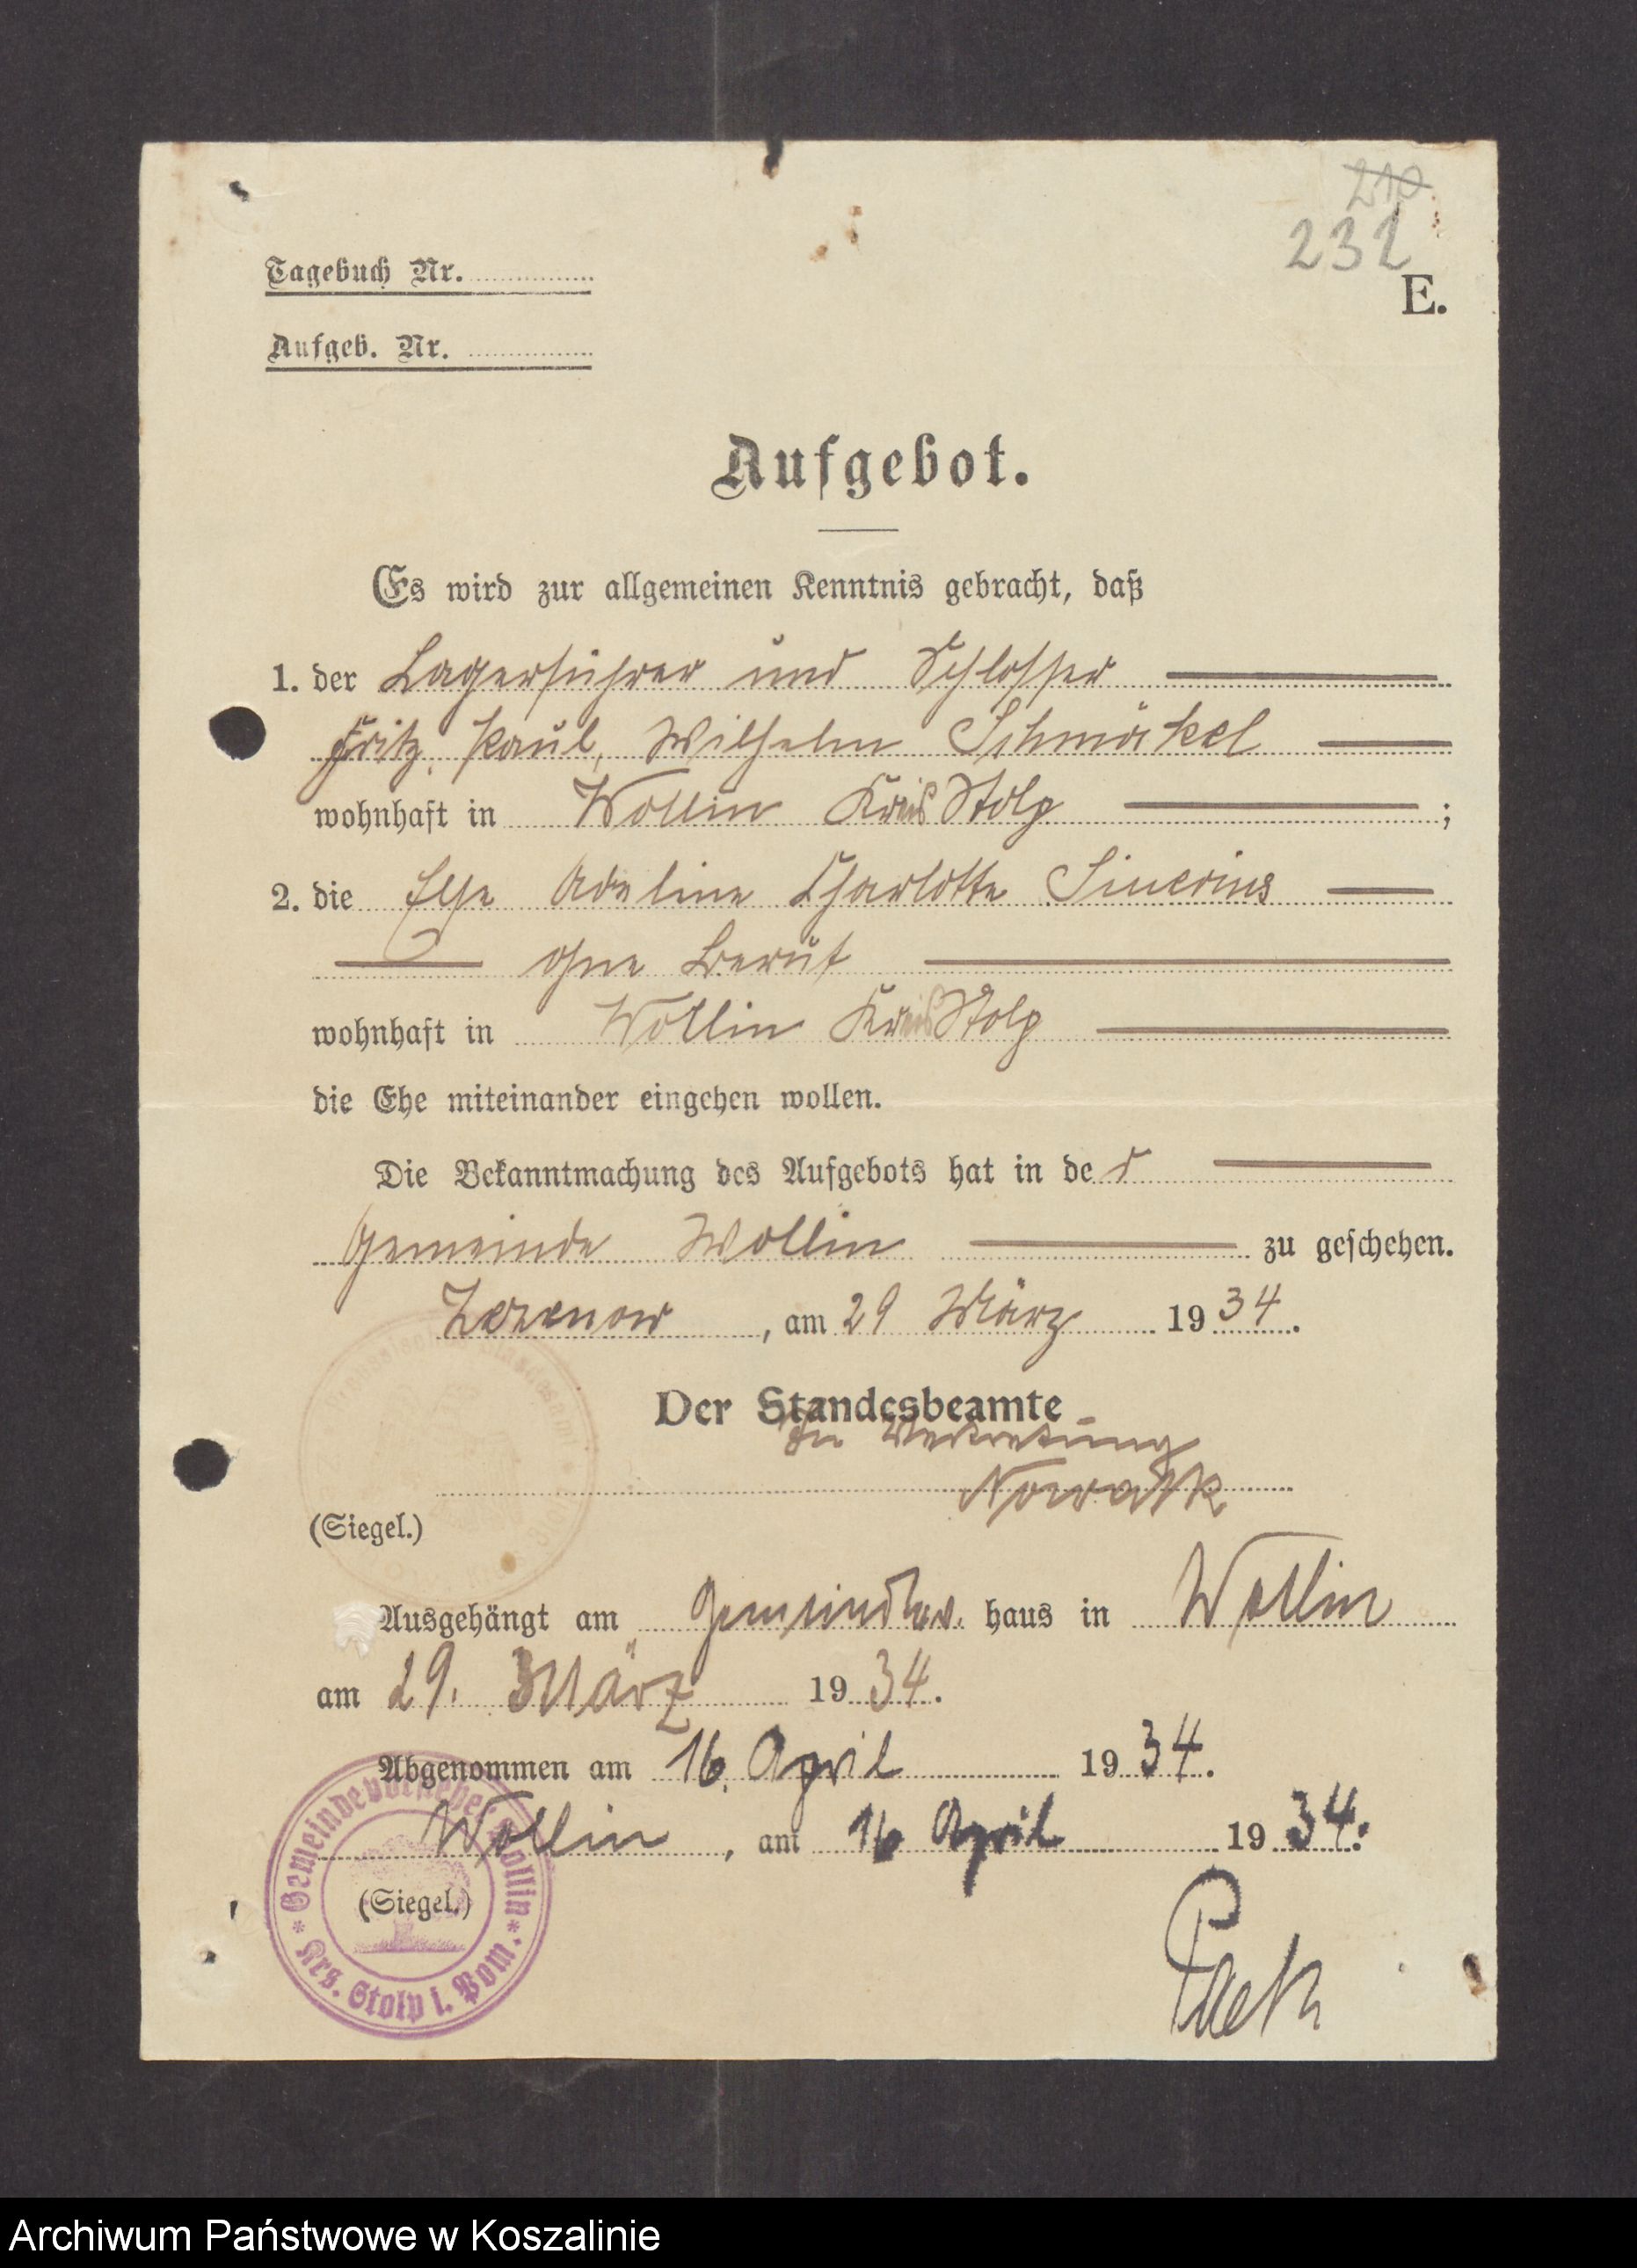 210
232
E.
Tagebuch Nr.
Aufgeb. Nr.
Aufgebot.
Es wird zur allgemeinen Kenntnis gebracht, daß
1. der Lagerführer und Schlosser
Fritz, Paul, Wilhelm Schmäkel
wohnhaft in Wollin Kreis Stolp ;
2. die Else Adeline Charlotte Siuerius
ohne Beruf
wohnhaft in Wollin Kreis Stolp
die Ehe miteinander eingehen wollen.
Die Bekanntmachung des Aufgebots hat in der
Gemeinde Wollin zu geschehen.
Zezenow, am 29 März 1934.
Der Standesbeamte
In Vertretung
Nowack
(Siegel.)
Ausgehängt am Gemeinde haus in Wollin
am 29. März 1934.
Abgenommen am 16. April 1934.
Wollin, am 16 April 1934.
(Siegel.)
Gemeindevorsteher Wollin * Krs. Stolp i. Pom. *
Archiwum Państwowe w Koszalinie